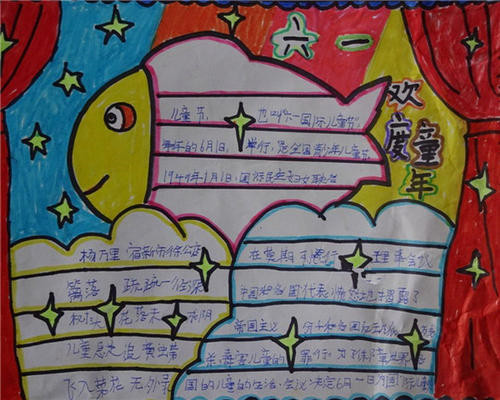 六一
欢度童年
儿童节，也叫六一国际儿童节，
每年的6月1日，举行，是全国青少年儿童节
1949年1月1日，国际民主妇女联合
杨万里 宿新市徐公店
篱落 疏疏一径深
树头 花落未 阴
儿童急走追黄
飞入菜花 无处寻
在莫斯 行 理事会议
中国和各国代表愤怒地揭露了
帝国主义 分子和各国反动派
杀、毒害儿童的 罪行。为了保障世界各
国的儿童的生活，会议决定6月一日为国际儿童